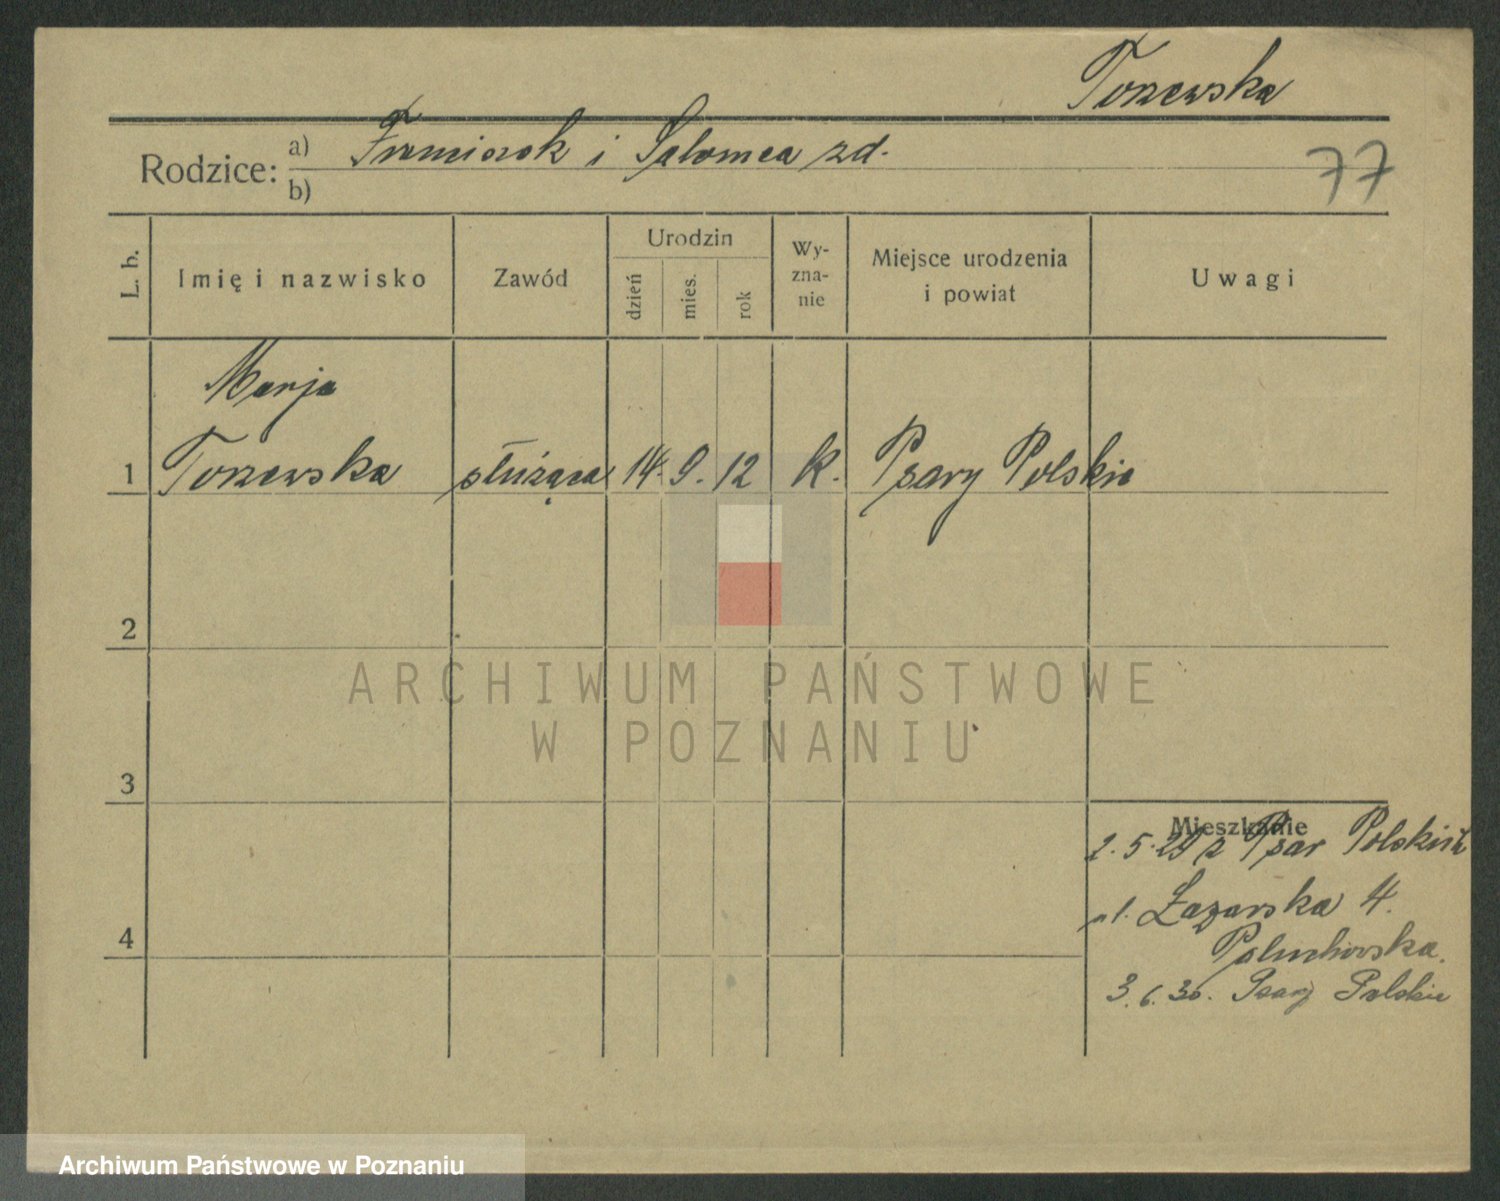 Torzewska
Rodzice: a) Franciszek i Salomea zd.
b)
77
L. b.
Imię i nazwisko
Zawód
Urodzin
dzień
mies.
rok
Wy-
zna-
nie
Miejsce urodzenia
i powiat
Uwagi
Marja
1 Torzewska służąca 14. 9. 12 k. Psary Polskie
2
3
4
Mieszkanie
2.5.29 z Psar Polskich
ul. Łazarska 4.
3.6.30. Psary Polskie
ARCHIWUM PAŃSTWOWE
W POZNANIU
Archiwum Państwowe w Poznaniu